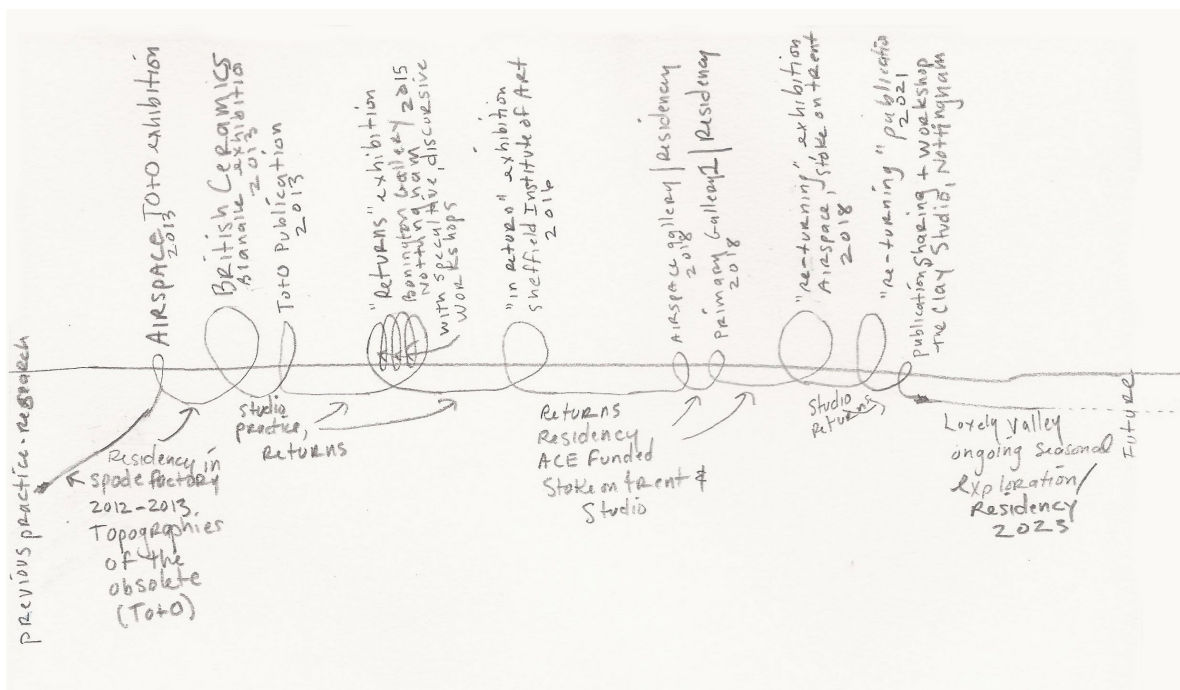 previous practice-research
AIRSPACE ToTO exhibition
2013
British Ceramics
Biannale exhibition
2013
ToTO Publication
2013
"Returns" exhibition
Bonington Gallery 2015
Nottingham
with speculative, discursive
workshops
"in return" exhibition
Sheffield Institute of Art
2016
Airspace gallery | Residency
2018
Primary Gallery | Residency
2018
"re-turning" exhibition
Airspace, Stoke on trent
2018
"re-turning" publicatio
2021
Publication sharing + workshop
the Clay Studio, Nottingham
Residency in
spode factory
2012-2013.
Topographies
of the
obsolete
(ToTO)
studio
practice,
returns
Returns
Residency
ACE Funded
Stoke on trent &
Studio
Studio
returns,
Loxely Valley
ongoing seasonal
exploration/
Residency
2023
Future